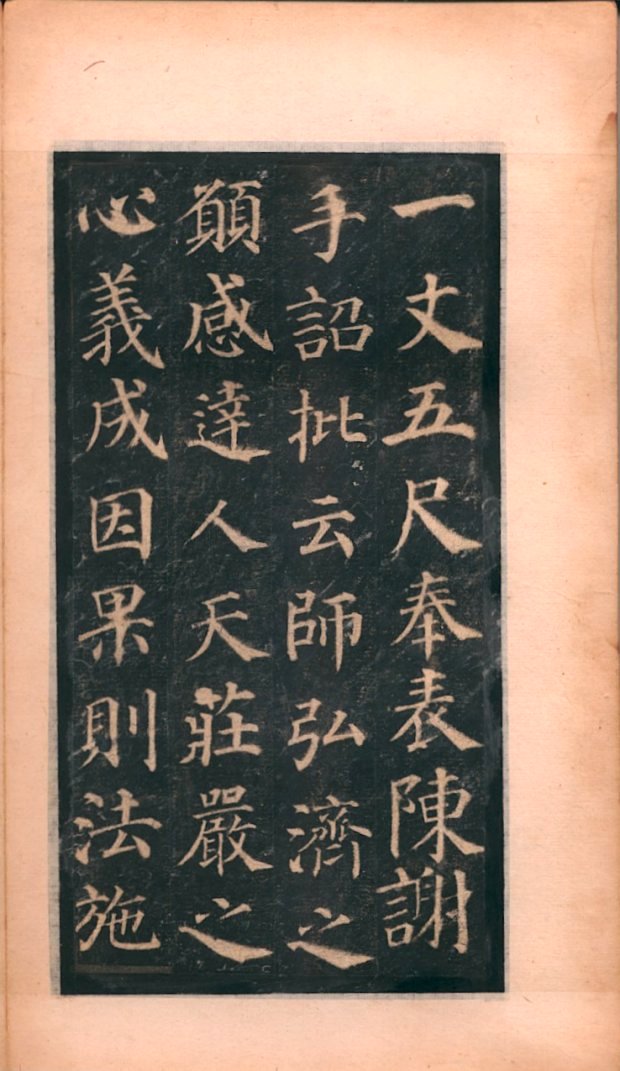 一丈五尺奉表陳謝
手詔批云師弘濟之
願感達人天莊嚴之
心義成因果則法施